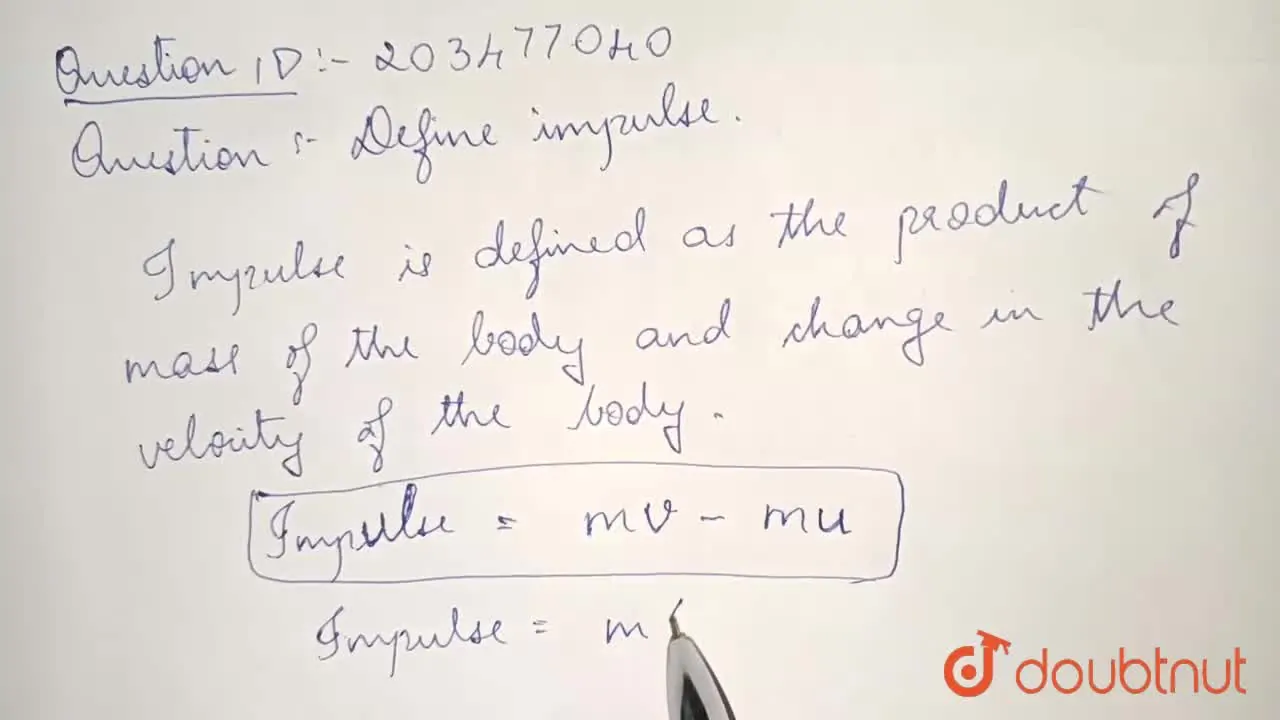 Question ID :- 203477040
Question :- Define impulse.
Impulse is defined as the product of
mass of the body and change in the
velocity of the body.
Impulse = mv - mu
Impulse = m (
doubtnut